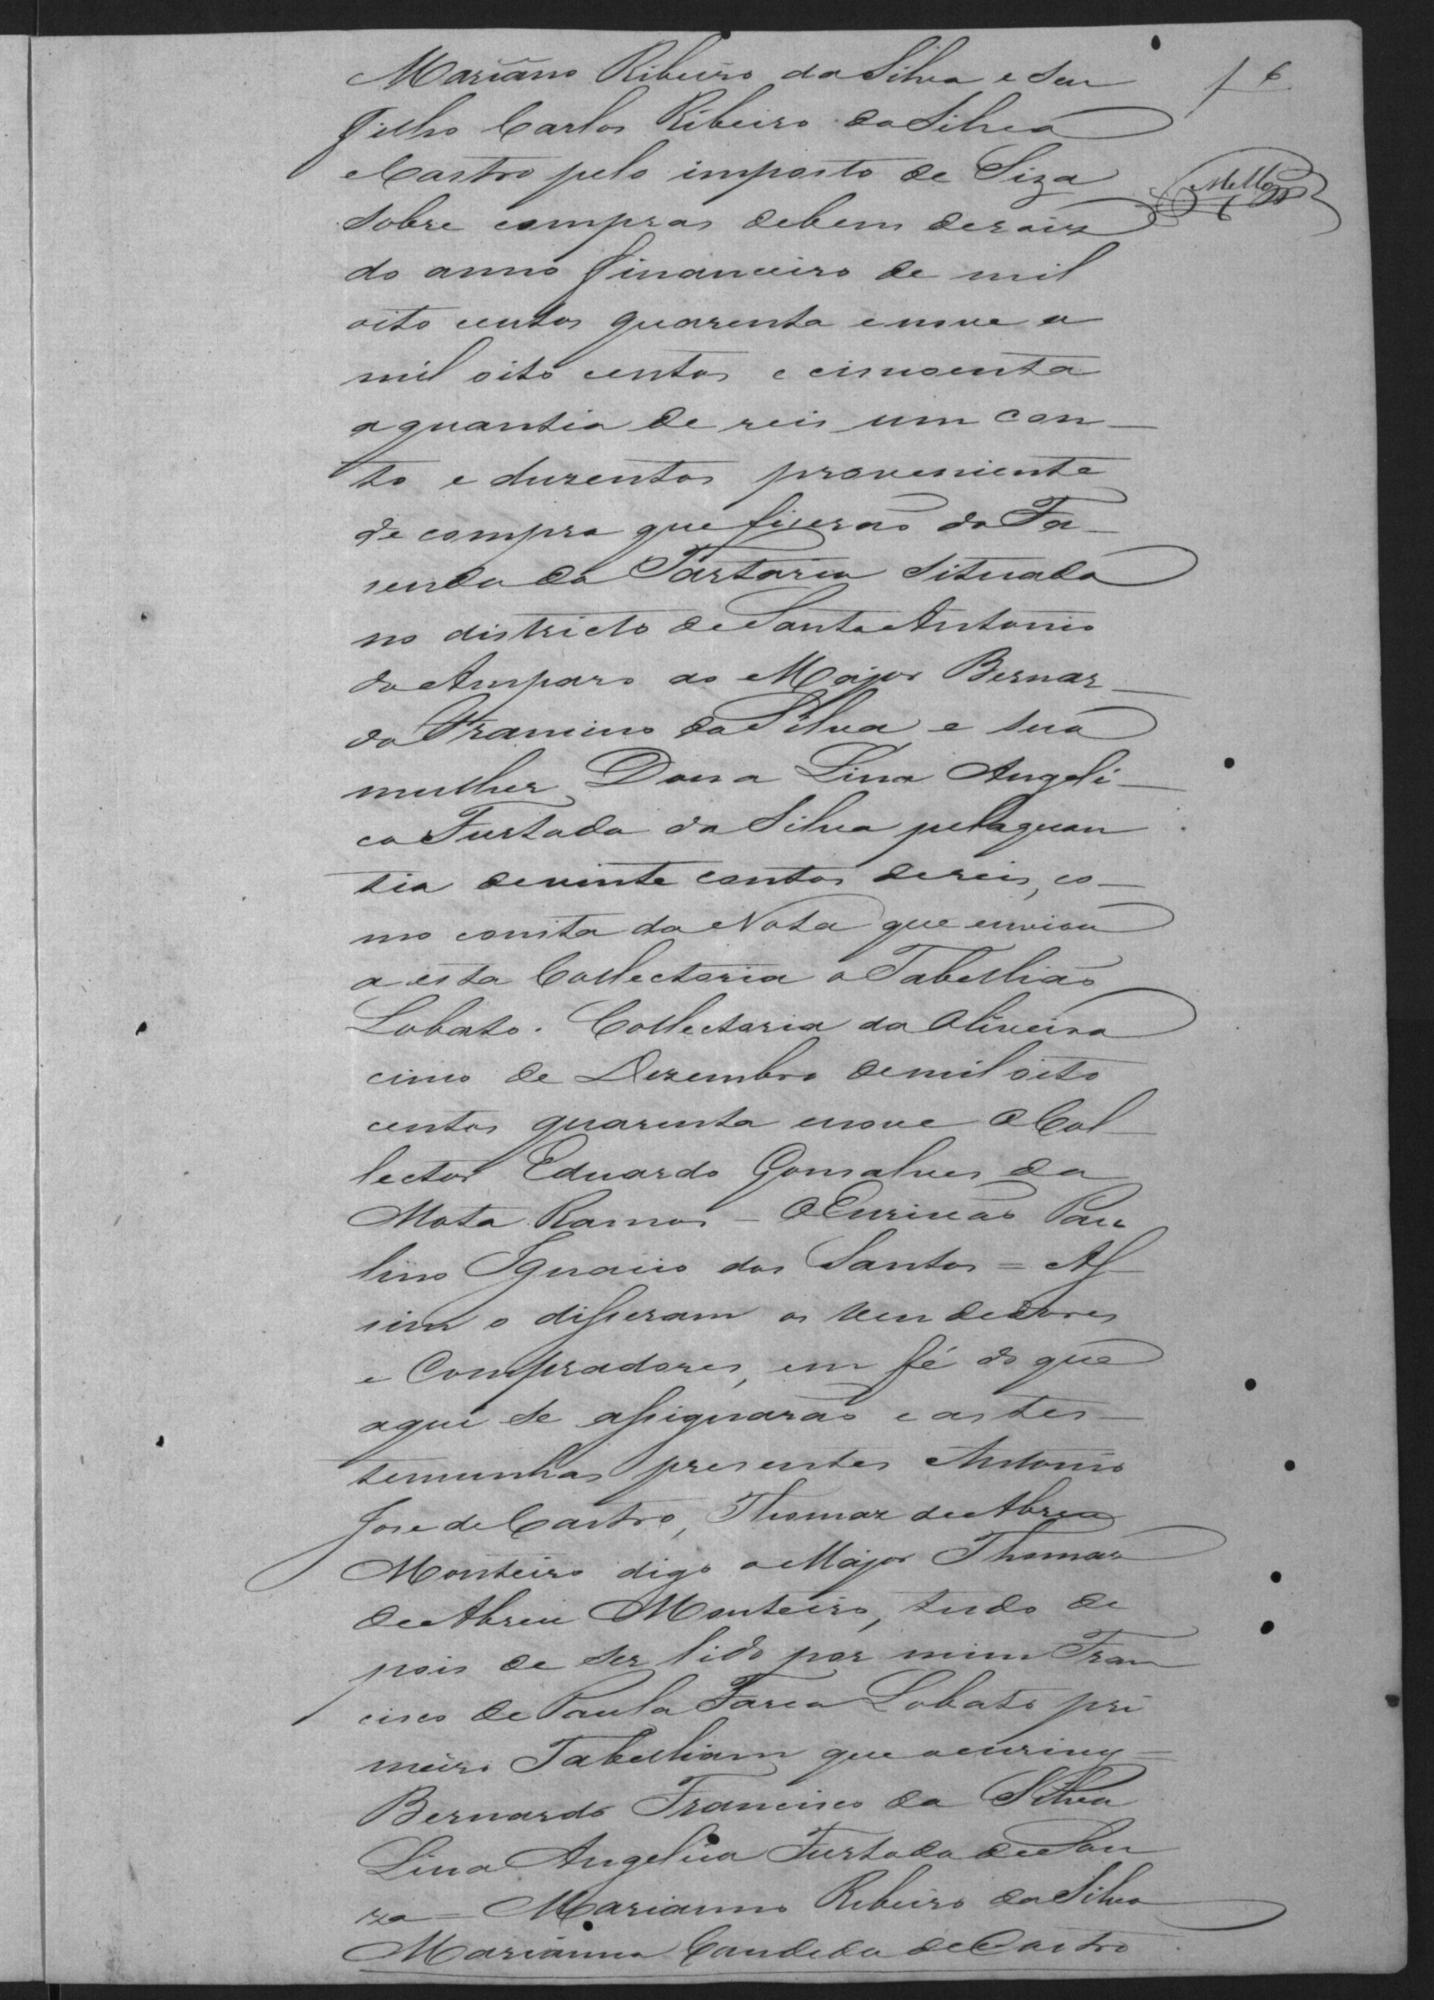 6
Mello
Mariano Ribeiro da Silva e seu
filho Carlos Ribeiro da Silva
e Castro pelo imposto de Siza
sobre compras debens deraiz
do anno financeiro de mil
oito centos quarenta enove a
mil oito centos e cincoenta
a quantia de reis um con_
to e duzentos proveniente
de compra que fizerão da Fa_
senda da Tartaria situada
no districto de Santo Antonio
do Amparo ao Major Bernar_
do Francisco da Silva e sua
mulher Dona Lina Angeli_
ca Furtada da Silva pelaquan
tia devinte contos dereis, co_
mo consta da Nota que enviou
a esta Collectoria o Tabellião
Lobato. Collectoria da Oliveira
cinco de Dezembro demil oito
centos quarenta enove O Col_
lector Eduardo Gonsalves da
Mota Ramos _ O Escrivão Pau
lino Ignacio dos Santos = As_
sim o disseram os vendedores
e Compradores, em fé do que
aqui se assignarão e as tes_
temunhas presentes Antonio
Jose de Castro, Thomaz de Abreu
Monteiro digo o Major Thomaz
de Abreu Monteiro, tudo de
pois de ser lido por mim Fran
cisco de Paula Faria Lobato pri
meiro Tabelliam que o escrivy =
Bernardo Francisco da Silva
Lina Angelica Furtada de Sou
za = Marianno Ribeiro da Silva
Marianna Candida de Castro